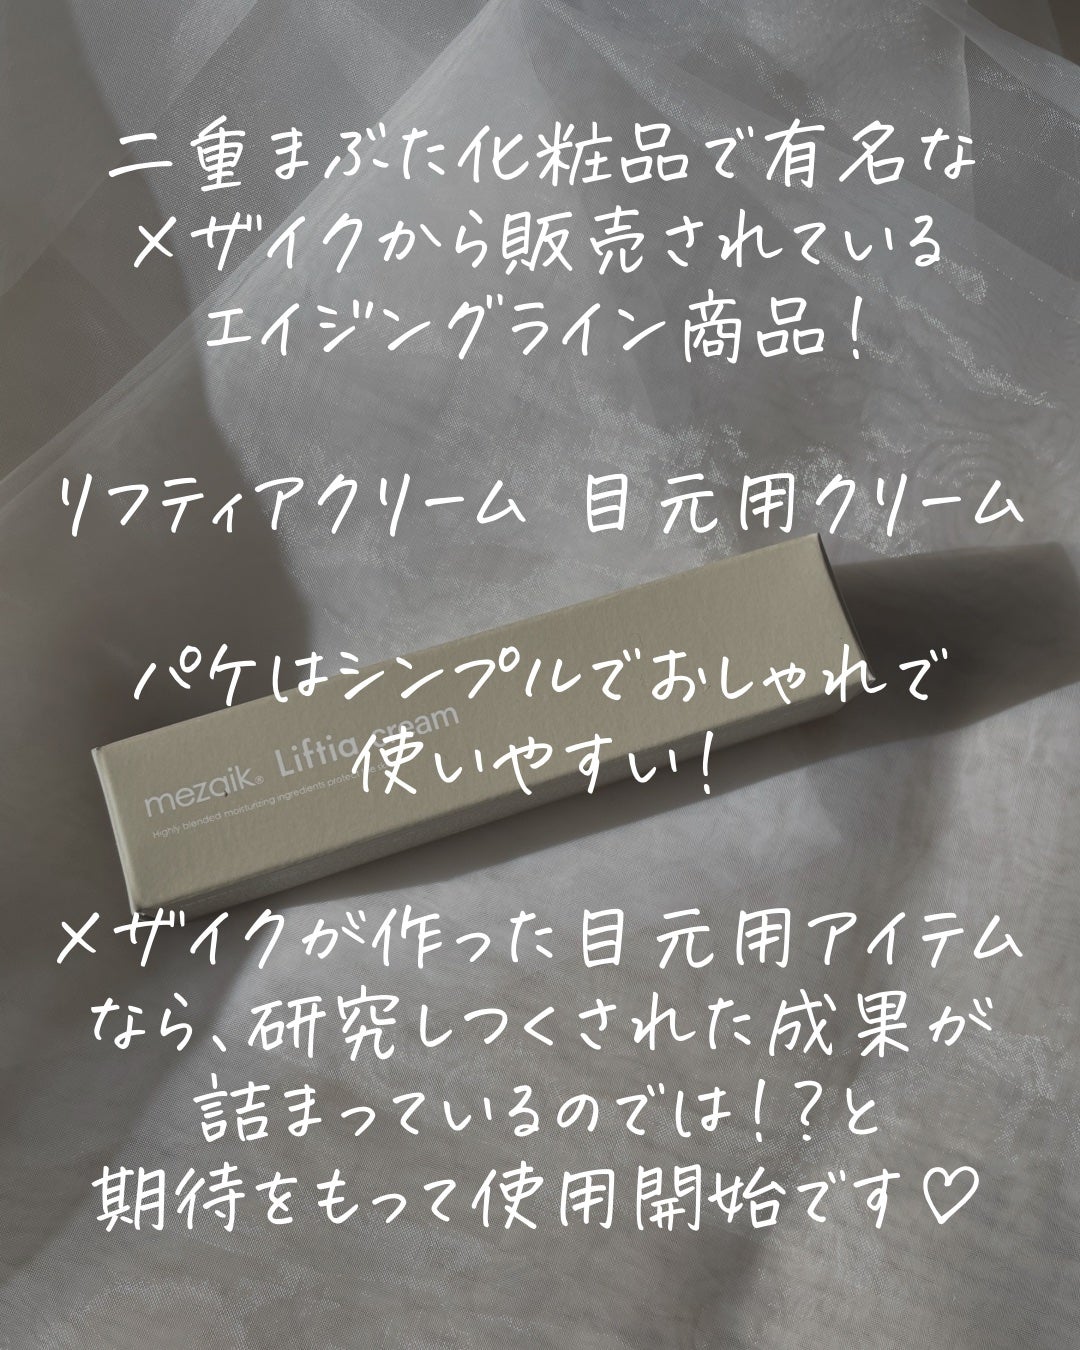 二重まぶた化粧品で有名な
メザイクから販売されている
エイジングライン商品!
リフティアクリーム 目元用クリーム
パケはシンプルでおしゃれで
使いやすい!
mezaik® Liftia cream
Highly blended moisturizing ingredients protect
メザイクが作った目元用アイテム
なら、研究しつくされた成果が
詰まっているのでは!?と
期待をもって使用開始です♡